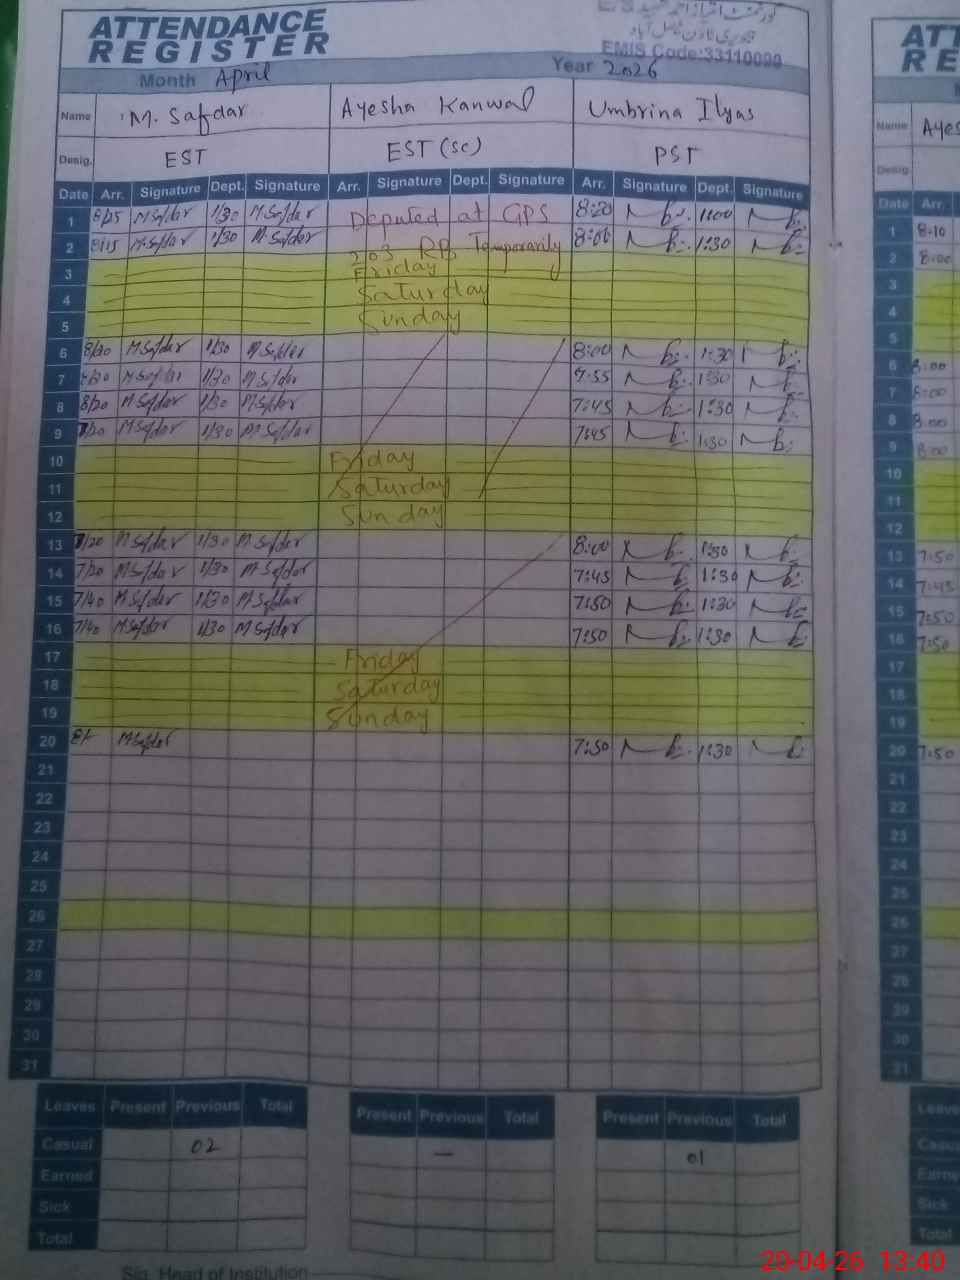 ATTENDANCE
REGISTER
EMIS Code:33110099
Month April Year 2026
Name M. Safdar Ayesha Kanwal Umbrina Ilyas
Desig. EST EST (SC) PST
Date Arr. Signature Dept. Signature Arr. Signature Dept. Signature Arr. Signature Dept. Signature
1 8/25 MSafdar 1/30 MSafdar Deputed at GPS 8:20 1:00
2 8/15 MSafdar 1/30 MSafdar 203 RB Temporarily 8:00 1:30
3 Friday
4 Saturday
5 Sunday
6 8/20 MSafdar 1/30 MSafdar 8:00 1:30
7 MSafdar 1/30 MSafdar 7:55 1:30
8 8/20 MSafdar 1/30 MSafdar 7:45 1:30
9 MSafdar 1/30 MSafdar 7:45 1:30
10 Friday
11 Saturday
12 Sunday
13 MSafdar 1/30 MSafdar 8:00 1:30
14 7/20 MSafdar 1/30 MSafdar 7:45 1:30
15 7/40 MSafdar 1/30 MSafdar 7:50 1:30
16 7/40 MSafdar 1/30 MSafdar 7:50 1:30
17 Friday
18 Saturday
19 Sunday
20 MSafdar 7:50 1:30
21
22
23
24
25
26
27
28
29
30
31
Leaves Present Previous Total Present Previous Total Present Previous Total
Casual 02 — 01
Earned
Sick
Total
Sig. Head of Institution
ATT
RE
Name Ayes
Desig.
Date Arr.
1 8:10
2 8:00
3
4
5
6 8:00
7 8:00
8 8:00
9 8:00
10
11
12
13 7:50
14 7:45
15 7:50
16 7:50
17
18
19
20 7:50
21
22
23
24
25
26
27
28
29
30
31
Leave
Casu
Earne
Sick
Total
20-04-26 13:40